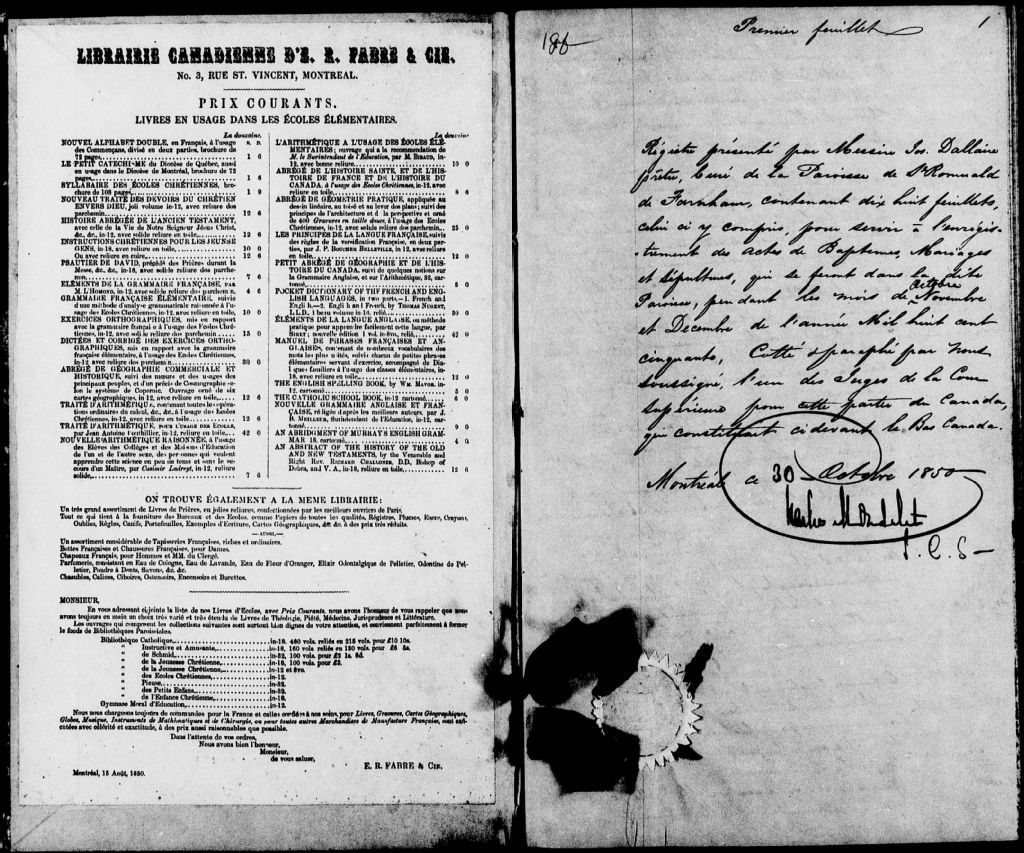 LIBRAIRIE CANADIENNE D'E. R. FABRE & CIE.
No. 3, RUE ST. VINCENT, MONTREAL.
PRIX COURANTS.
LIVRES EN USAGE DANS LES ÉCOLES ÉLÉMENTAIRES.
La douzaine.
s. D.
NOUVEL ALPHABET DOUBLE, en Français, à l'usage
des Commençans, divisé en deux parties, brochure de
72 pages, 1 6
LE PETIT CATECHISME du Diocèse de Québec, aussi
en usage dans le Diocèse de Montréal, brochure de 72
pages, 1 6
SYLLABAIRE DES ÉCOLES CHRÉTIENNES, bro-
chure de 108 pages, 1 9
NOUVEAU TRAITÉ DES DEVOIRS DU CHRÉTIEN
ENVERS DIEU, joli volume in-12, avec reliure dos
parchemin 12 6
HISTOIRE ABRÉGÉE DE L'ANCIEN TESTAMENT,
avec celle de la Vie de Notre Seigneur Jésus Christ,
&c., &c., in-12, avec solide reliure en toile, 12 6
INSTRUCTIONS CHRÉTIENNES POUR LES JEUNES
GENS, in-18, avec reliure en toile, 10 0
Ou avec reliure en cuire, 12 6
PSAUTIER DE DAVID, précédé des Prières durant la
Messe, &c., &c., in-18, avec solide reliure dos parche-
min, 7 6
ELÉMENTS DE LA GRAMMAIRE FRANÇAISE, par
M. L'HOMOND, in-12, avec solide reliure dos parchemin, 4 6
GRAMMAIRE FRANÇAISE ÉLÉMENTAIRE, suivie
d'une méthode d'analyse grammaticale raisonnée à l'u-
sage des Ecoles Chrétiennes, in-12, avec reliure en toile, 10 0
EXERCICES ORTHOGRAPHIQUES, mis en rapport
avec la grammaire française à l'usage des Ecoles Chré-
tiennes, in-12, avec solide reliure dos parchemin, 15 0
DICTÉES ET CORRIGÉ DES EXERCICES ORTHO-
GRAPHIQUES, mis en rapport avec la grammaire
française élémentaire, à l'usage des Ecoles Chrétiennes,
in-12 avec reliure dos parchemin 30 0
ABRÉGÉ DE GÉOGRAPHIE COMMERCIALE ET
HISTORIQUE, suivi des mœurs et des usages des
principaux peuples, et d'un précis de Cosmographie se-
lon le système de Copernic. Ouvrage orné de six
cartes géographiques, in 12, avec reliure en toile, 12 6
TRAITÉ D'ARITHMÉTIQUE, contenant toutes les opéra-
tions ordinaires du calcul, &c., &c., à l'usage des Ecoles
Chrétiennes, in-12, avec reliure en toile, 12 6
TRAITÉ D'ARITHMÉTIQUE, POUR L'USAGE DES ÉCOLES,
par Jean Antoine Fœrthillier, in-12, reliure en toile, 42 0
NOUVELLE ARITHMÉTIQUE RAISONNÉE, à l'usage
des Elèves des Collèges et des Maisons d'Education
de l'un et de l'autre sexe, des personnes qui veulent
apprendre cette science en peu de tems et sans le se-
cours d'un Maître, par Casimir Ladreyt, in-12, reliure
solide, 7 6
La douzaine
L'ARITHMÉTIQUE A L'USAGE DES ÉCOLES ÉLÉ-
MENTAIRES; ouvrage qui a la recommendation de
M. le Surintendant de l'Education, par M. BIBAUD, in-
12, avec bonne reliure 10 0
ABRÉGÉ DE L'HISTOIRE SAINTE, ET DE L'HIS-
TOIRE DE FRANCE ET DE L'HISTOIRE DU
CANADA, à l'usage des Ecoles Chrétiennes, in-12, avec
reliure en toile 8 6
ABRÉGÉ DE GÉOMÉTRIE PRATIQUE, appliquée au
dessin linéaire, au toisé et au lever des plans; suivi des
principes de l'architecture et de la perspective et orné
de 400 Gravures en taille douce, à l'usage des Ecoles
Chrétiennes, in-12, avec solide reliure dos parchemin, 25 0
LES PRINCIPES DE LA LANGUE FRANÇAISE, suivis
des règles de la versification Française, en deux par-
ties, par J. P. BOUCHER BELLEVILLE, in 12, avec reliure
en toile, 12 0
PETIT ABRÉGÉ DE GÉOGRAPHIE ET DE L'HIS-
TOIRE DU CANADA, suivi de quelques notions sur
la Grammaire Anglaise, et sur l'Arithmétique, in 32, car-
tonné, 5 0
POCKET DICTIONARY OF THE FRENCH AND EN-
GLISH LANGUAGES, in two parts,—1. French and
English.—2. English and French, by THOMAS NUGENT,
L.L.D., 1 beau volume in 14, relié, 30 0
ÉLÉMENTS DE LA LANGUE ANGLAISE, ou méthode
pratique pour apprendre facilement cette langue, par
SIRET; nouvelle édition 1 vol. in 8vo, relié, 42 0
MANUEL DE PHRASES FRANÇAISES ET AN-
GLAISES, contenant de nombreux vocabulaires des
mots les plus utiles, suivis chacun de petites phrases
élémentaires servant d'exercice, accompagné de Dia-
logues familiers à l'usage des classes élémentaires, in-
18, avec reliure en toile, 12 0
THE ENGLISH SPELLING BOOK, by WM. MAVOR, in-
12, cartonné, 5 0
THE CATHOLIC SCHOOL BOOK, in-12 cartonné, 6 0
NOUVELLE GRAMMAIRE ANGLAISE ET FRAN-
ÇAISE, rédigée d'après les meilleurs auteurs, par J.
B. MEILLEUR, Surintendant de l'Education, in-12, car-
tonné, 9 0
AN ABRIDGMENT OF MURRAY'S ENGLISH GRAM-
MAR 18. cartonné, 4 0
AN ABSTRACT OF THE HISTORY OF THE OLD
AND NEW TESTAMENTS, by the Venerable and
Right Rev. RICHARD CHALLONER, D.D., Bishop of
Debra, and V. A., in-18, reliure en toile, 12 6
ON TROUVE ÉGALEMENT A LA MEME LIBRAIRIE:
Un très grand assortiment de Livres de Prières, en jolies reliures, confectionnées par les meilleurs ouvriers de Paris.
Tout ce qui tient à la fourniture des Bureaux et des Ecoles, comme Papiers de toutes les qualités, Régistres, Plumes, Encre, Crayons,
Oublies, Règles, Canifs, Portefeuilles, Exemples d'Ecriture, Cartes Géographiques, &c. &c. à des prix très réduits.
—AUSSI,—
Un assortiment considérable de Tapisseries Françaises, riches et ordinaires.
Bottes Françaises et Chaussures Françaises, pour Dames.
Chapeaux Français, pour Hommes et MM. du Clergé.
Parfumerie, consistant en Eau de Cologne, Eau de Lavande, Eau de Fleur d'Oranger, Elixir Odontalgique de Pelletier, Odontine de Pel-
letier, Poudre à Dents, Savons, &c. &c.
Chasubles, Calices, Ciboires, Ostensoirs, Encensoirs et Burettes.
MONSIEUR,
En vous adressant ci-jointe la liste de nos Livres d'Ecoles, avec Prix Courants, nous avons l'honneur de vous rappeler que nous
avons toujours en main un choix très varié et très étendu de Livres de Théologie, Piété, Médecine, Jurisprudence et Littérature.
Les ouvrages qui composent les collections suivantes sont surtout bien dignes de votre attention, et conviennent parfaitement à former
le fonds de Bibliothèques Paroissiales.
Bibliothèque Catholique, in-18. 460 vols. reliés en 215 vols. pour £10 10s.
" Instructive et Amusante, in-18, 160 vols reliés en 130 vols. pour £6 5s.
" de Schmid, in-32, 100 vols. pour £2 1s. 8d.
" de la Jeunesse Chrétienne, in-18, 100 vols. pour £3.
" de la Jeunesse Chrétienne, in-12 et 8vo.
" des Ecoles Chrétiennes, in-12.
" Pieuse, in-32.
" des Petits Enfans, in-32.
" de l'Enfance Chrétienne, in-18.
Gymnase Moral d'Education, in-12.
Nous nous chargeons toujours de commandes pour la France et celles confiées à nos soins, pour Livres, Gravures, Cartes Géographiques,
Globes, Musique, Instruments de Mathématiques et de Chirurgie, ou pour toutes autres Marchandises de Manufacture Française, sont exé-
cutées avec célérité et exactitude, à des prix aussi raisonnables que possible.
Dans l'attente de vos ordres,
Nous avons bien l'honneur,
Monsieur,
de vous saluer,
E. R. FABRE & CIE.
Montréal, 15 Août, 1850.
Premier feuillet
1
186
Régistre présenté par Messire Jos. Dallaire
prêtre, Curé de la Paroisse de St Romuald
de Farnham, contenant dix huit feuillets,
celui ci y compris, pour servir à l'enrégis-
trement des actes de Baptemes, Mariages
et Sépultures, qui se feront dans la dite
Paroisse, pendant les mois de Octobre Novembre
et Décembre de l'année Mil huit cent
cinquante, Cotté & paraphé par Nous
soussigné, l'un des Juges de la Cour
supérieure pour cette partie du Canada,
qui constituait ci devant le Bas Canada.
Montréal ce 30 Octobre 1850
Charles Mondelet
J. C. S